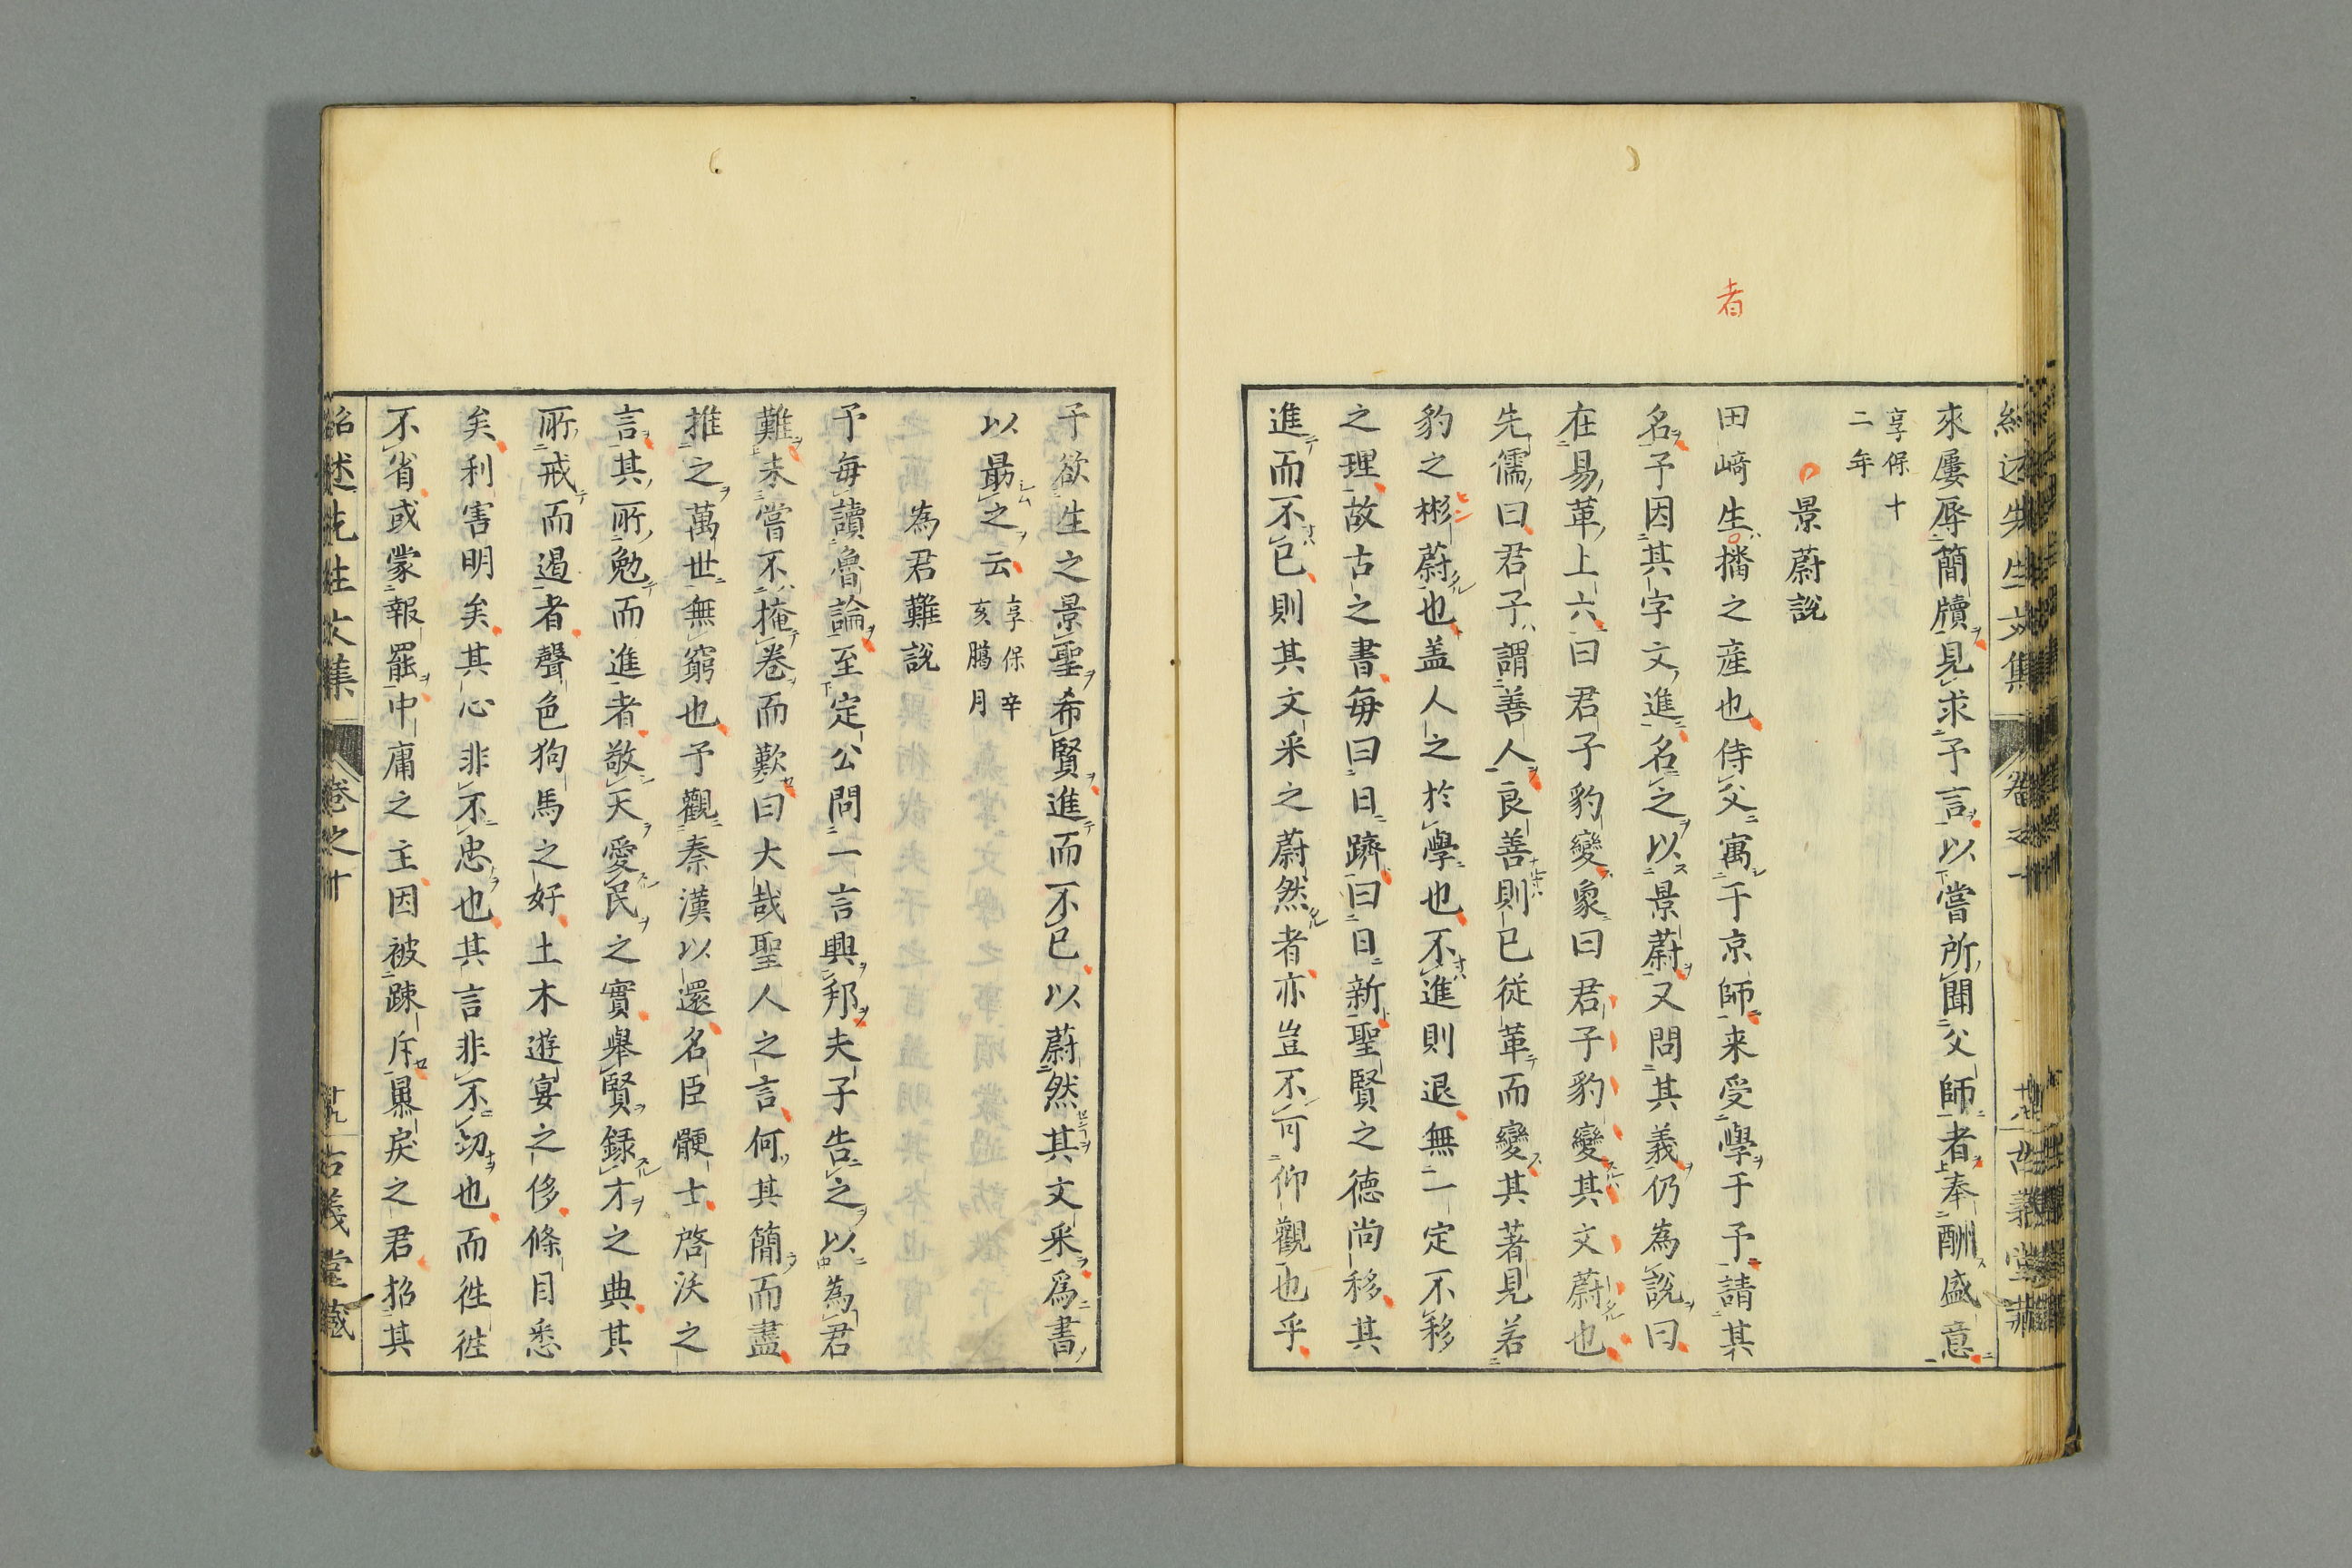 者
來屢辱簡牘見求予言以嘗所聞父師者奉酬盛意
享保十
二年
景蔚說
田﨑生播之産也侍父寓于京師来受學于予請其
名予因其字文進名之以景蔚又問其義仍為說曰
在易革上六曰君子豹變象曰君子豹變其文蔚也
先儒曰君子謂善人良善則已従革而變其著見若
豹之彬蔚也盖人之於學也不進則退無一定不移
之理故古之書毎曰日躋曰日新聖賢之徳尚移其
進而不已則其文采之蔚然者亦豈不可仰觀也乎
予欲生之景聖希賢進而不已以蔚然其文采爲書
以勗之云
享保辛
亥臈月
為君難說
予毎讀魯論至定公問一言興邦夫子告之以為君
難未嘗不掩巻而歎曰大哉聖人之言何其簡而盡
推之萬世無窮也予觀秦漢以還名臣骾士啓沃之
言其所勉而進者敬天愛民之實舉賢録才之典其
所戒而遏者聲色狗馬之好土木遊宴之侈條目悉
矣利害明矣其心非不忠也其言非不切也而徃徃
不省或蒙報罷中庸之主因被疎斥㬥戾之君招其
紹述先生文集 卷之十 十九 古義堂藏